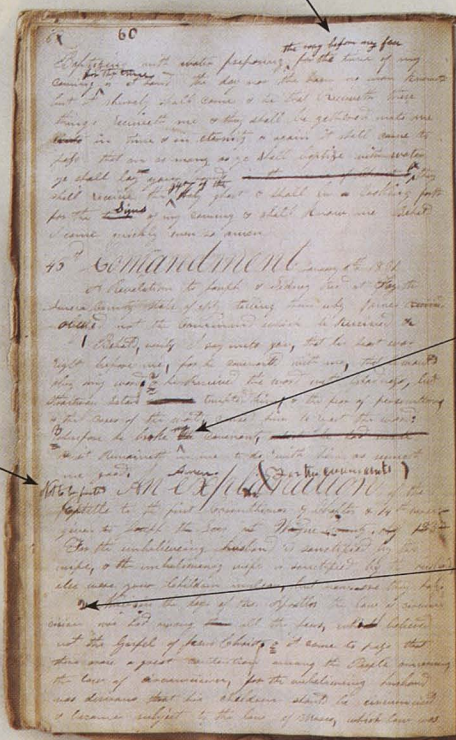 60
the way before my face
Baptizing with water preparing for the time of my
coming for the time the day nor the hour no man knoweth
but it shurely shall come & he that Receiveth these
things Receiveth me & they shall be gathered unto me
in time & in eternity & again it shall come to
pass that on as many as ye shall baptize with water
ye shall lay your hands they
shall receive the gift of the Holy ghost & shall be looking forth
for the signs of my coming & shall know me Behold
I come quickly even so amen
Comandment January 1831
a Revelation to Joseph & Sidney at Fayette
Seneca County State of telling them why James
not the Commandment which he Received
Behold verily I say unto you that his heart was
right before me for he covenanted with me that he would
obey my word & he Received the word with gladness but
straitway Satan tempted him & the fear of persecution
& the cares of the world caused him to reject the word
wherefore he broke my covenant
& it Remaineth in me to do with him as
me good Amen
Not to be printed An explanation of the
Epistle to the first Corinthians 7 Chapter & 14 verse
given to Joseph the Seer at Wayne
For the unbelieving husband is sanctified by the
wife & the unbelieving wife is sanctified by the
else were your Children unclean but now are they holy
in the days of the Apostles the law of circum
cision was had among all the Jews which believed
not the Gospel of Jesus Christ & it came to pass that
there arose a great contention among the People concerning
the law of circumcision for the unbelieving husband
was desirous that his children should be circumcised
& become subject to the law of Moses which law was